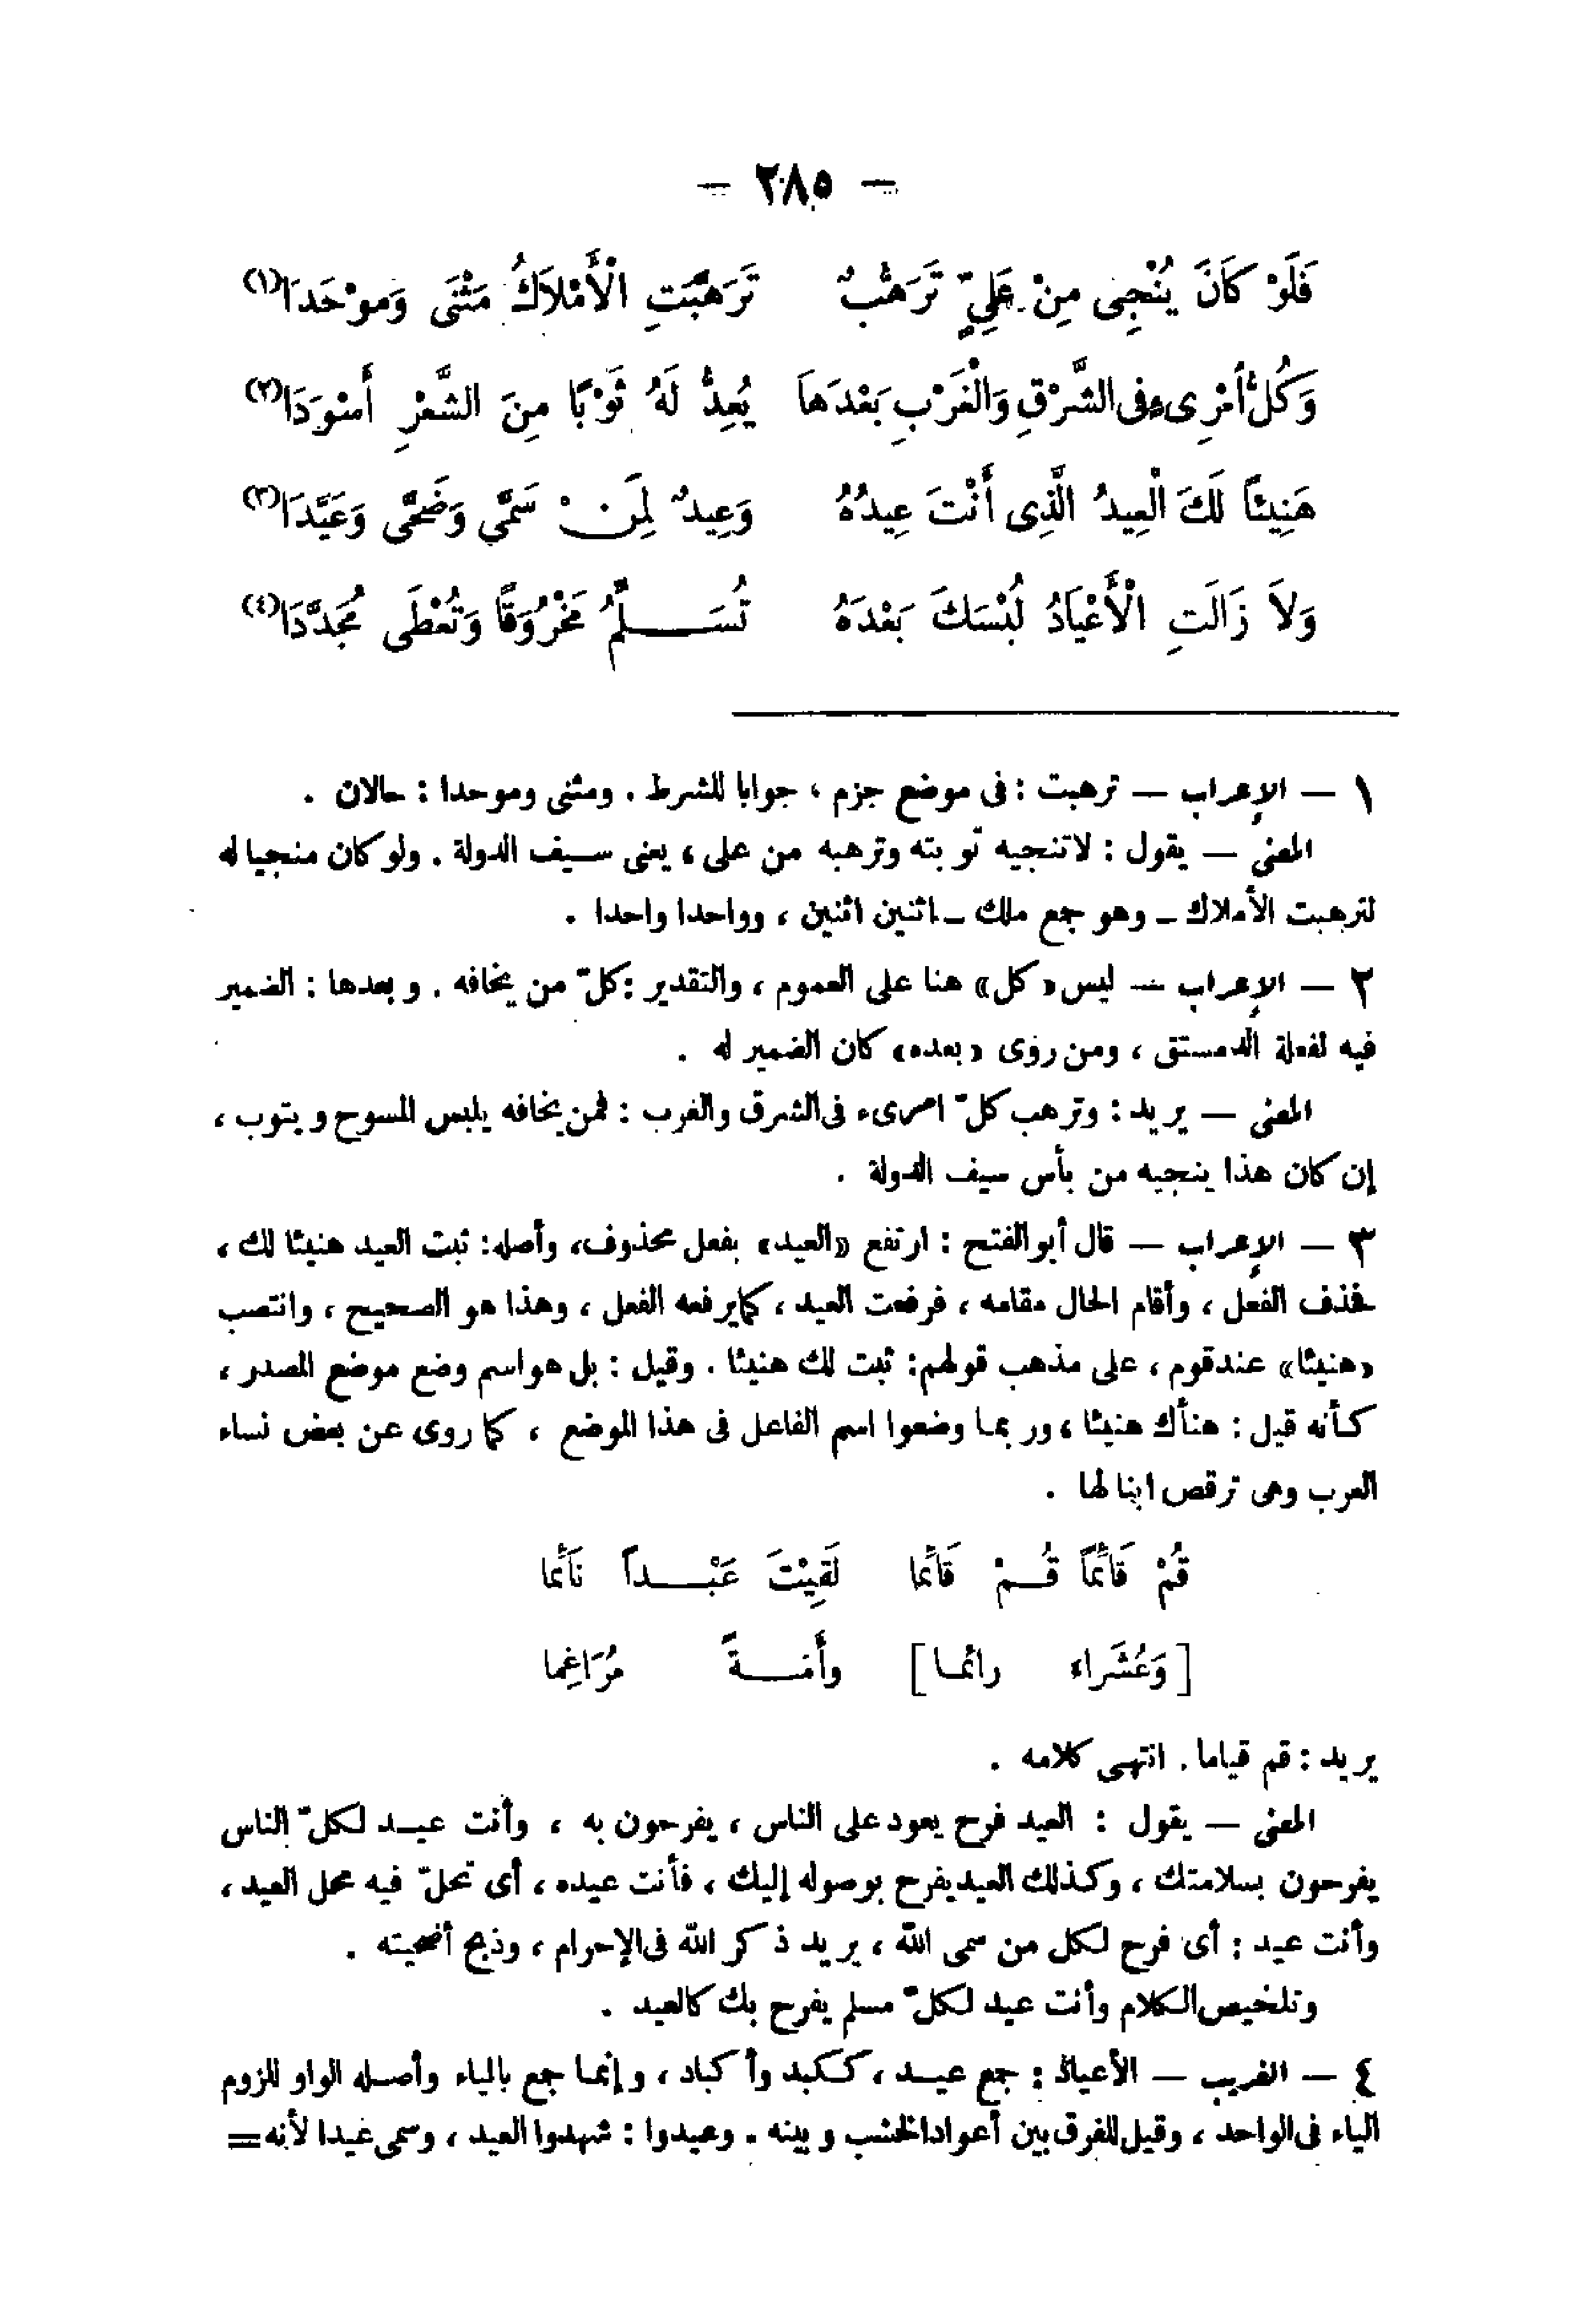 — ٢٨٥ —
فَلَوْ كَانَ يُنْجِى مِنْ عَلِىٍّ تَرَهُّبٌ تَرَهَّبَتِ الْأَمْلاَكُ مَثْنَى وَمَوْحَدَا(١)
وَكُلُّ أمْرِىءٍ فى الشَّرْقِ وَالْغَرْبِ بَعْدَهاَ يُعِدُّ لَهُ ثَوْبًا مِنَ الشَّعْرِ أَسْوَدَا(٢)
هَنِيئاً لَكَ الْعِيدُ الَّذِى أَنْتَ عِيدُهُ وَعِيدٌ لِمَنْ سَمَّى وَضَحَّى وَعَيَّدَا(٣)
وَلاَ زَالَتِ الْأَعْيَادُ لُبْسَكَ بَعْدَهُ تُسَلِّمُ مَخْرُوقًا وَتُعْطَى مُجَدَّدَا(٤)
١ — الإعراب — ترهبت : فى موضع جزم ، جوابا للشرط . ومثنى وموحدا : حالان .
المعنى — يقول : لاتنجيه توبته وترهبه من على ، يعنى سيف الدولة . ولو كان منجيا له
لترهبت الأملاك — وهو جمع ملك — اثنين اثنين ، وواحدا واحدا .
٢ — الإعراب — ليس «كل» هنا على العموم ، والتقدير : كلّ من يخافه . وبعدها : الضمير
فيه لفعلة الدمستق ، ومن روى «بعده» كان الضمير له .
المعنى — يريد : وترهب كلّ امرىء فى الشرق والغرب : فمن يخافه يلبس المسوح ويتوب ،
إن كان هذا ينجيه من بأس سيف الدولة .
٣ — الإعراب — قال أبو الفتح : ارتفع «العيد» بفعل محذوف، وأصله: ثبت العيد هنيئا لك ،
فحذف الفعل ، وأقام الحال مقامه ، فرفعت العيد ، كما يرفعه الفعل ، وهذا هو الصحيح ، وانتصب
«هنيئا» عند قوم ، على مذهب قولهم: ثبت لك هنيئا . وقيل : بل هو اسم وضع موضع المصدر ،
كأنه قيل : هنأك هنيئا ، وربما وضعوا اسم الفاعل فى هذا الموضع ، كما روى عن بعض نساء
العرب وهى ترقص ابنا لها .
قُمْ قَائمًا قُمْ قَائما لَقِيْتَ عَبْداً نَائما
[وَعُشَراء رائما] وأَمَةً مُرَاغِما
يريد : قم قياما . انتهى كلامه .
المعنى — يقول : العيد فرح يعود على الناس ، يفرحون به ، وأنت عيد لكلّ الناس
يفرحون بسلامتك ، وكذلك العيد يفرح بوصوله إليك ، فأنت عيده ، أى تحلّ فيه محل العيد ،
وأنت عيد : أى فرح لكل من سمى الله ، يريد ذكر الله فى الإحرام ، وذبح أضحيته .
وتلخيص الكلام وأنت عيد لكلّ مسلم يفرح بك كالعيد .
٤ — الغريب — الأعياد : جمع عيد ، ككبد وأكباد ، وإنما جمع بالياء وأصله الواو للزوم
الياء فى الواحد ، وقيل للفرق بين أعواد الخشب وبينه . وعيدوا : شهدوا العيد ، وسمى عيدا لأنه =